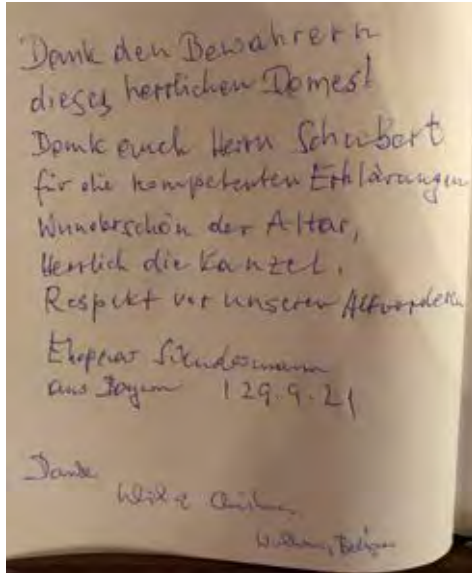 Dank den Bewahrern
dieses herrlichen Domes!
Dank auch Herrn Schubert
für die kompetenten Erklärungen
Wunderschön der Altar,
Herrlich die Kanzel.
Respekt vor unseren Altvorderen
Ehepaar
aus Bayern 29.9.21
Danke